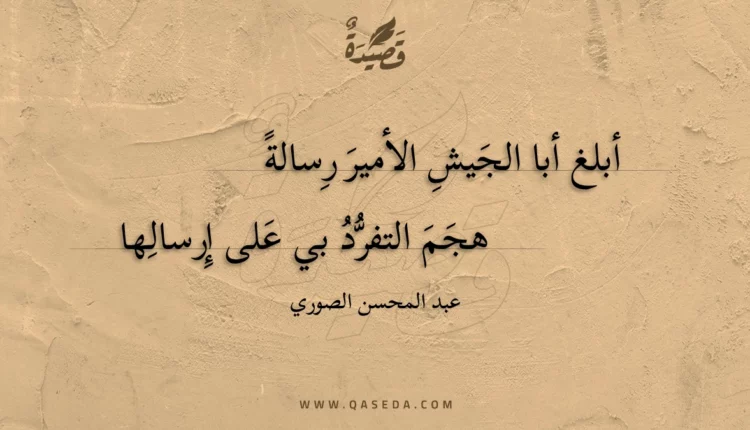 قَصِيدَةٌ
أبلغ أبا الجَيشِ الأميرَ رِسالةً
هجَمَ التفرُّدُ بي عَلى إِرسالِها
عبد المحسن الصوري
WWW.QASEDA.COM